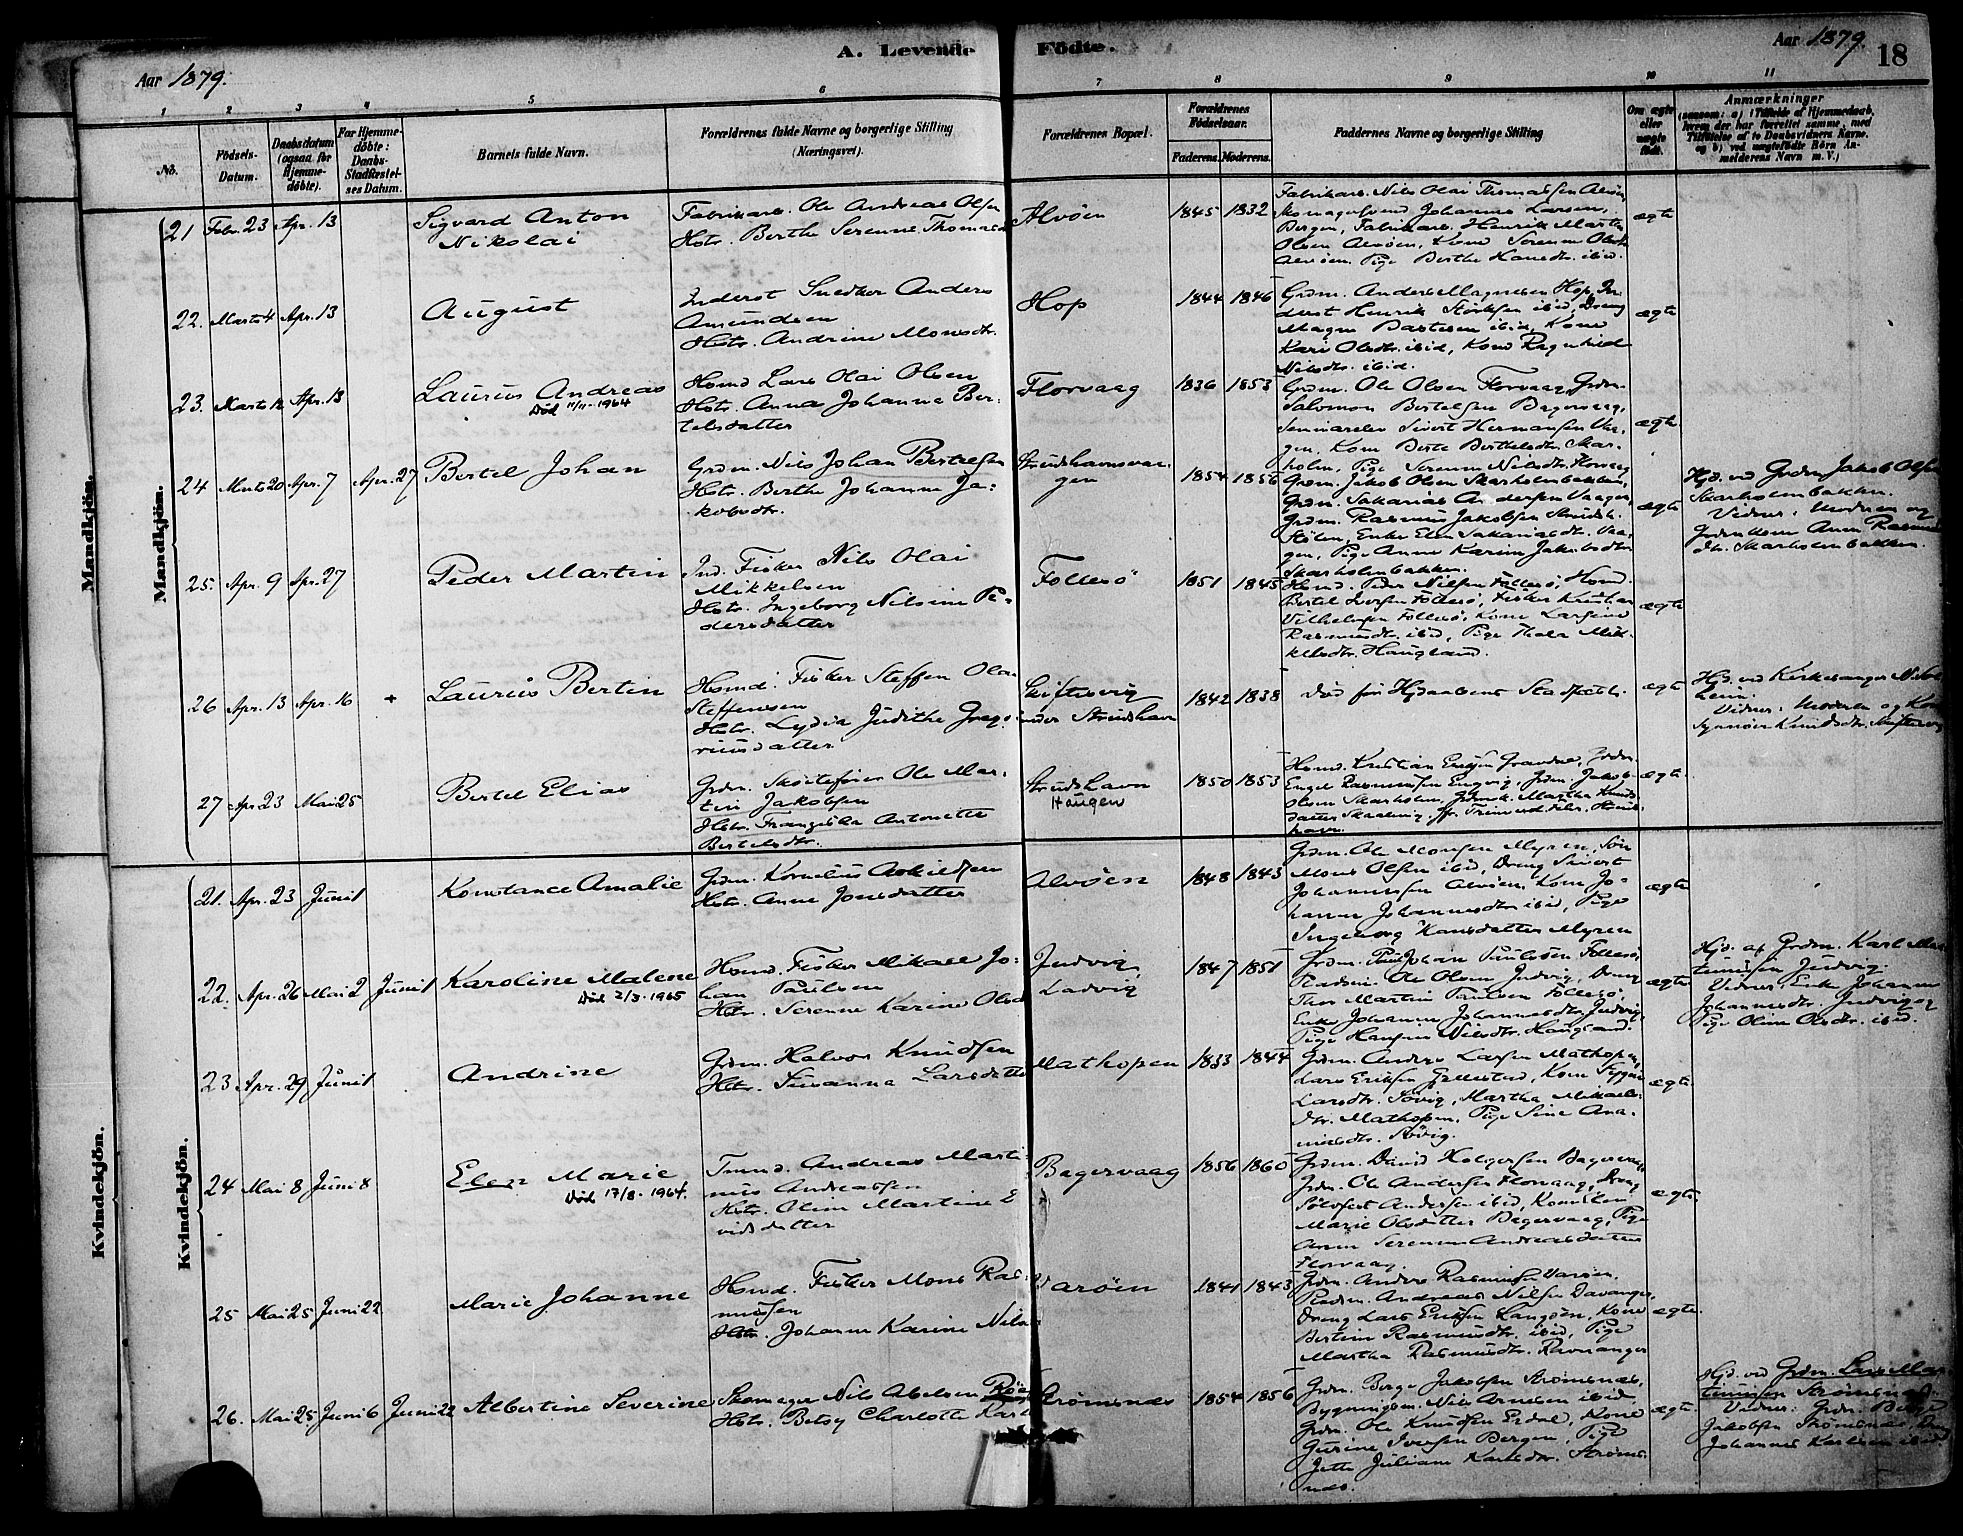 A. Levende Födte.
Aar 1879.
Aar 1879.
18
1 2 3 4 5 6 7 8 9 10 11
No.
Födsels-
Datum.
Daabsdatum
(ogsaa for
Hjemme-
döbte).
For Hjemme-
döbte:
Daabs-
Stadfæstel-
ses Datum.
Barnets fulde Navn.
Forældrenes fulde Navne og borgerlige Stilling
(Næringsvei).
Forældrenes Bopæl.
Forældrenes
Födselsaar.
Faderens. Moderens.
Faddernes Navne og borgerlige Stilling
Om ægte
eller
uægte
födt.
Anmærkninger
Mandkjön.
Mandkjön.
21 Febr. 23 Apr. 13
Sigvard Anton
Nikolai
Fabrikarb. Ole Andreas Olsen
Hstr. Berthe Serenne Thomasd
Alvøen
1845 1832
Fabrikarb. Nils Olai Thomassen Alvøen
Johannes Larsen,
Bergen, Fabrikarb. Henrik Martin
Olsen Alvøen, Kone Serenne Olsdtr
Alvøen. Pige Berthe Hansdtr. ibid.
ægte
22. Marts 4 Apr. 13
August
Inderst Snedker Anders
Amundsen
Hstr. Andrine Monsdtr.
Hop
1844 1846
Grdm. Anders Magnesen Hop, In
derst Henrik ibid, Dreng
Magne Bastesen ibid, Kone
Kari Olsdtr. ibid, Kone Ragnhild
Nilsdtr. ibid.
ægte
23. Marts 12 Apr. 13
Laurits Andreas
Död 11/11-1964
Hsmd Lars Olai Olsen
Hstr. Anna Johanne Ber-
telsdatter
Florvaag
1836 1853
Grdm. Ole Olsen Florvaag, Grdm.
Salomon Bertelsen Bagervaag,
Sivert Hermansen Vaa-
gen, Kone Berte Bertelsdtr. Skar-
holm, Pige Serenne Nilsdtr. Florvaag
ægte
24 Marts 20 Apr. 7 Apr. 27
Bertel Johan
Grdm. Nils Johan Bertelsen
Hstr. Berthe Johanne Ja-
kobsdtr.
Strudshavnsvaa-
gen
1854 1856
Grdm. Jakob Olsen Skarholmbakken,
Grdm. Sakarias Andersen Vaagen,
Grdm. Rasmus Jakobsen
Enke Elen Sakariasdtr. Vaa-
gen, Pige Anne Karine Jakobsdtr
Skarholmbakken.
ægte
Hjd. ved Grdm Jakob Olsen
Skarholmbakken.
Vidner: Moderen og
Grdmkone Anna Rasmus
dtr. Skarholmbakken.
25. Apr. 9 Apr. 27
Peder Martin
Ind. Fisker Nils Olai
Mikkelsen
Hstr. Ingeborg Nilsine Pe-
dersdatter
Follesö
1851 1845
Hsmd. Peder Nilsen Follesö, Hsmd.
Bertel Iversen Follesö, Fisker Kristian
Vilhelmsen Follesö, Kone Larsine
Rasmusdtr. ibid, Pige Thala Mik-
kelsdtr. Haugland.
ægte
26 Apr. 13 Apr. 16 +
Laurits Bertin
Hsmd. Fisker Steffen Ola
Steffensen
Hstr. Lydia Judithe Grego
riusdatter
Skiftesvig
under Strudshavn
1842 1838
Död før Hjdaabens Stadfæstels.
ægte
Hjd. ved Kirkesanger
Vidner: Moderen og Kone
Synnöve Knudsdtr. Skiftesvig
27 Apr. 23 Mai 25
Bertel Elias
Grdm. Skøitefører Ole Mar-
tin Jakobsen
Hstr. Franziska Antonette
Bertelsdtr.
Strudshavn
Haugen
1850 1853
Hsmd. Kristian Grdm.
Engel Rasmussen Grdm. Jakob
Olsen Skarholm, Martha Knuds
datter
havn.
ægte.
Kvindekjön.
Kvindekjön.
21. Apr. 23 Juni 1
Konstance Amalie
Grdm. Kornelius Askildsen
Hstr. Anne Jonsdatter
Alvøen
1848 1843
Grdm. Ole Monsen Myren, Søn
Mons Olsen ibid, Dreng Sivert
Johannessen Alvøen, Kone Jo-
hanne Johannesdtr. ibid, Pige
Ingeborg Hansdatter Myren
ægte
22. Apr. 26 Mai 2 Juni 1
Karoline Malene
Död 2/3-1965
Hsmd. Fisker Mikael Jo-
han Paulsen
Hstr. Serenne Karine Olsd
Judvig,
Ladvig
1847 1851
Grdm. Johan Paulsen Follesö,
Ole Olsen Judvig, Dreng
Thor Martin Paulsen Follesö,
Enke Johanne Johannesdtr. Judvig,
Pige Hansine Nilsdtr. Haugland.
ægte
Hjd. af Grdm. Karl Mar-
Judvig
Vidner: Enke Johanne
Johannesdtr. Judvig og
Pige Oline Olsdtr. ibid.
23 Apr. 29 Juni 1
Andrine
Grdm. Halvor Knudsen
Hstr. Susanna Larsdatter
Mathopen
1833 1844
Grdm. Anders Larsen Mathopen,
Lars Eriksen Gjellestad, Kone
Larsdtr. Søvig, Martha Mikaels-
dtr. Mathopen, Pige Sine
ægte
24 Mai 8 Juni 8
Elen Marie
Död 17/8-1964.
Andreas Marti-
nus Andreassen
Hstr. Oline Martine E
vidsdatter
Bagervaag
1856 1860
Grdm. David Holgersen Bagervaag,
Grdm. Ole Andersen Florvaag, Dreng
Sölvfest Andersen ibid, Kone Elen
Marie Olsdatter Bagervaag, Pige
Anne Serenne Andreasdatter
Florvaag.
ægte
25 Mai 25 Juni 22
Marie Johanne
Hsmd. Fisker Mons Ras-
mussen
Hstr. Johanne Karine Nils
Varöen
1841 1843
Grdm. Anders Rasmussen Varöen,
Andreas Nilsen Davanger,
Dreng Lars Eriksen Langöen, Kone
Bertine Rasmusdtr. ibid, Pige
Martha Rasmusdtr. Ravnanger
ægte.
26. Mai 25 Juni 6 Juni 22
Albertine Severine
Skomager Nils Abelsen
Hstr. Betsy Charlotte Karls
Strömsnes
1854 1856
Grdm. Berge Jakobsen Strömsnes,
Nils Arnesen ibid,
Grdm. Ole Knudsen Erdal, Kone
Gurine Iversen Bergen, Pige
Jette Juliane Karlsdtr. Ströms-
nes.
ægte.
Hjd. ved Grdm. Lars Mar
tinussen Strömsnes.
Vidner: Grdm. Berge
Jakobsen Strömsnes, Dreng
Johannes Karlsen ibid.